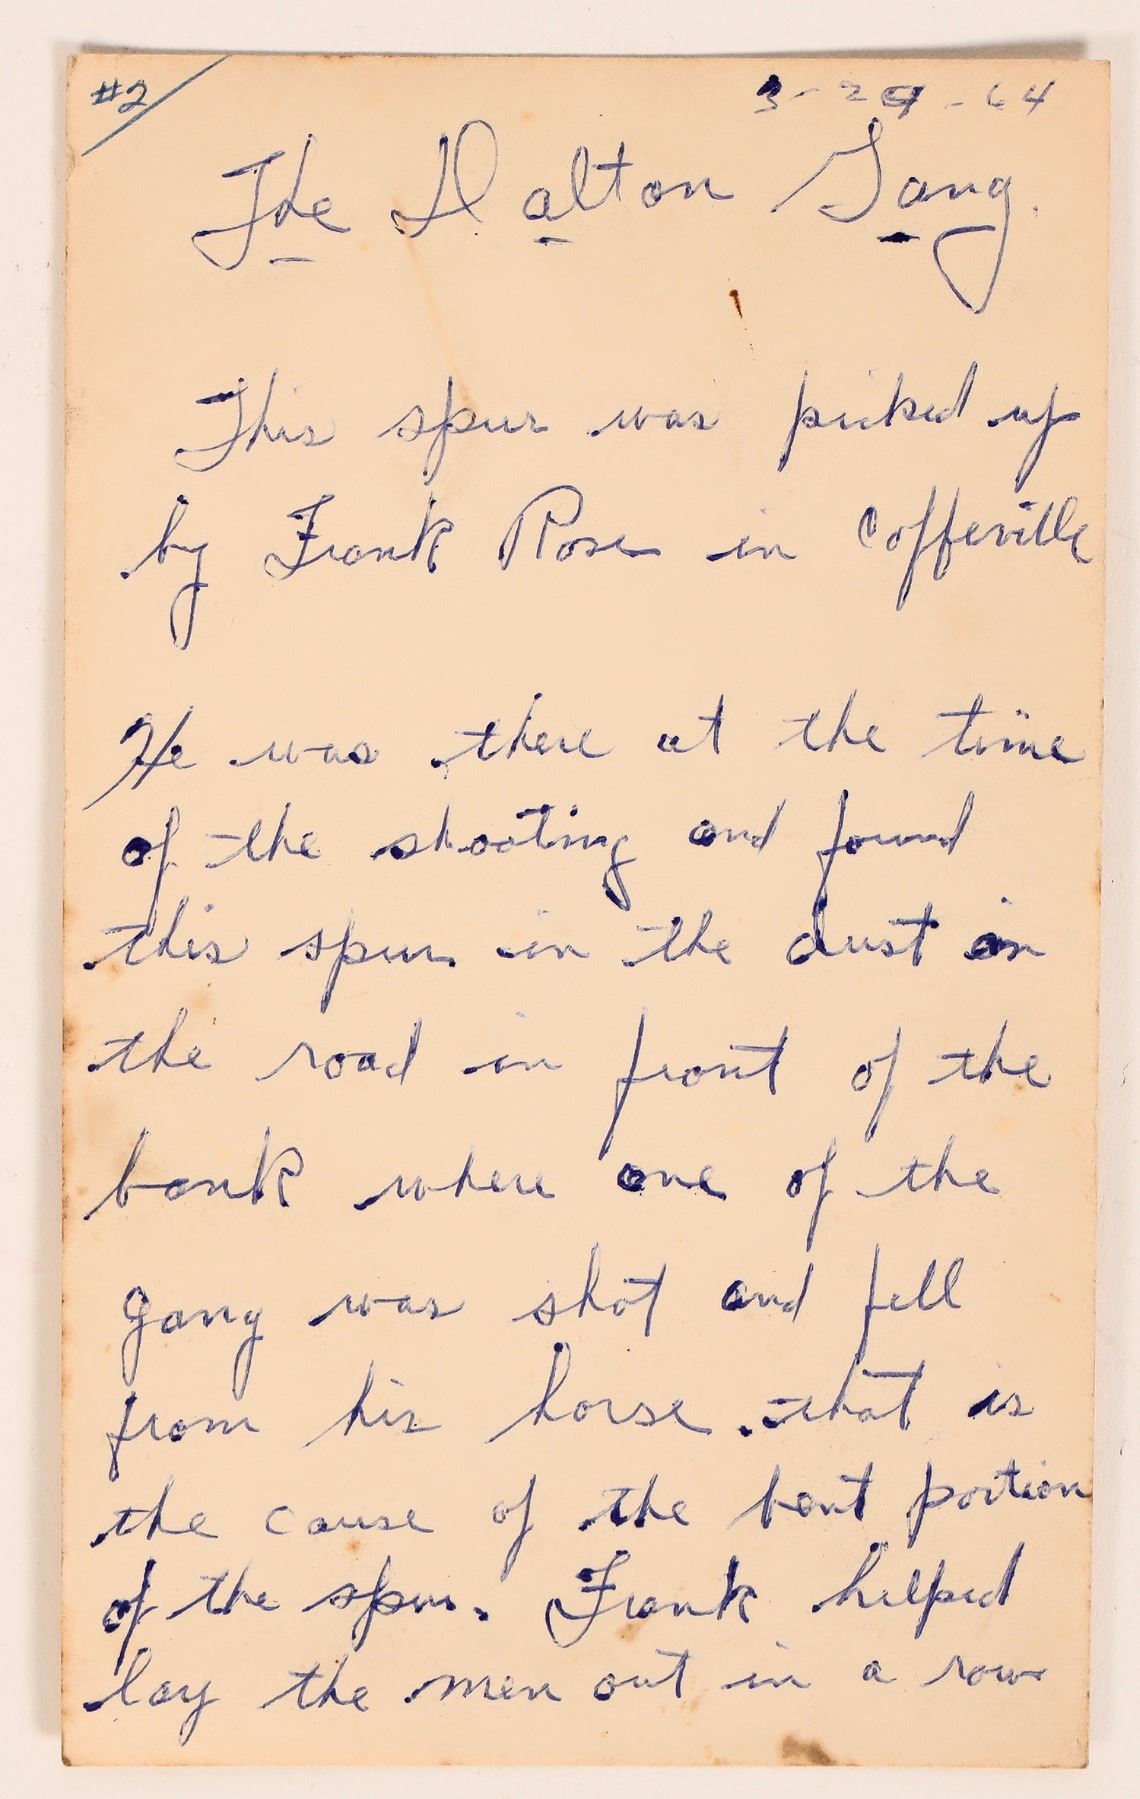 #2
3-29-64
The Dalton Gang.
This spur was picked up
by Frank Rose in Coffeville
He was there at the time
of the shooting and found
this spur in the dust in
the road in front of the
bank where one of the
gang was shot and fell
from his horse. that is
the cause of the bent portion
of the spur. Frank helped
lay the men out in a row